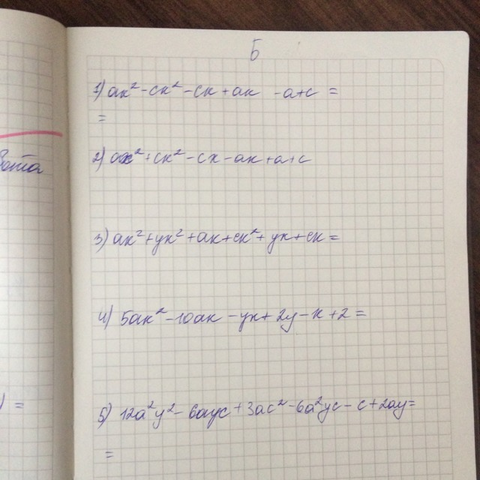 Б
1) ax² - cx² - cx + ax - a+c =
=
2) ax² + cx² - cx - ax + a + c
3) ax² + yx² + ax + cx² + yx + cx =
4) 5ax² - 10ax - yx + 2y - x + 2 =
5) 12a²y² - 6ayc + 3ac² - 6a²yc - c + 2ay =
=
) =